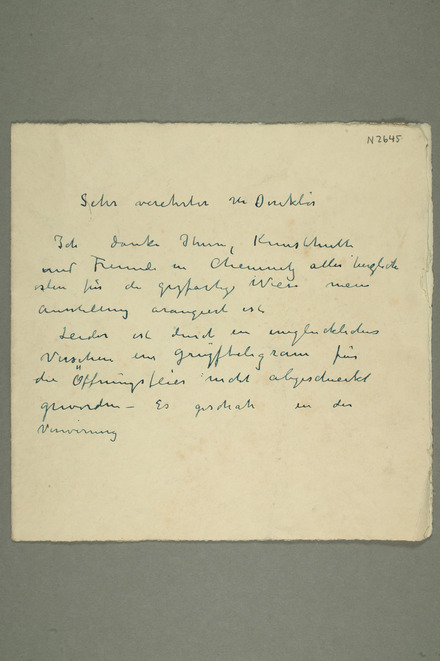 N 2645
Sehr verehrter Hr Direktör
Ich danke Ihnen, Kunsthütte
und Freunde in Chemnitz aller herzlich
sten für die
ausstellung arangiert ist
Leider ist durch ein unglückliches
Versehen ein telegram für
die Öffnungsfeier nicht abgeschickt
geworden – Es geschah in der
Verwirrung